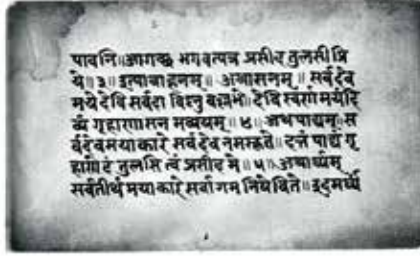 पावनि॥आगच्छ भगवत्यत्र प्रसीद तुलसीप्रि
ये॥३॥इत्यावाहनम्॥ अथासनम्॥ सर्वदेव
मये देवि सर्वदा विष्णुवल्लभे॥देवि स्वर्णमयंदि
व्यं गृहाणासनमव्ययम्॥४॥अथपाद्यम्॥स
र्वदेवमयाकारे सर्वदेवनमस्कृते॥दत्तं पाद्यं गृ
हाणेदं तुलसि त्वं प्रसीद मे॥५॥अथार्घ्यम्
सर्वतीर्थमयाकारे सर्वागमनिषेविते॥इदमर्घ्यं